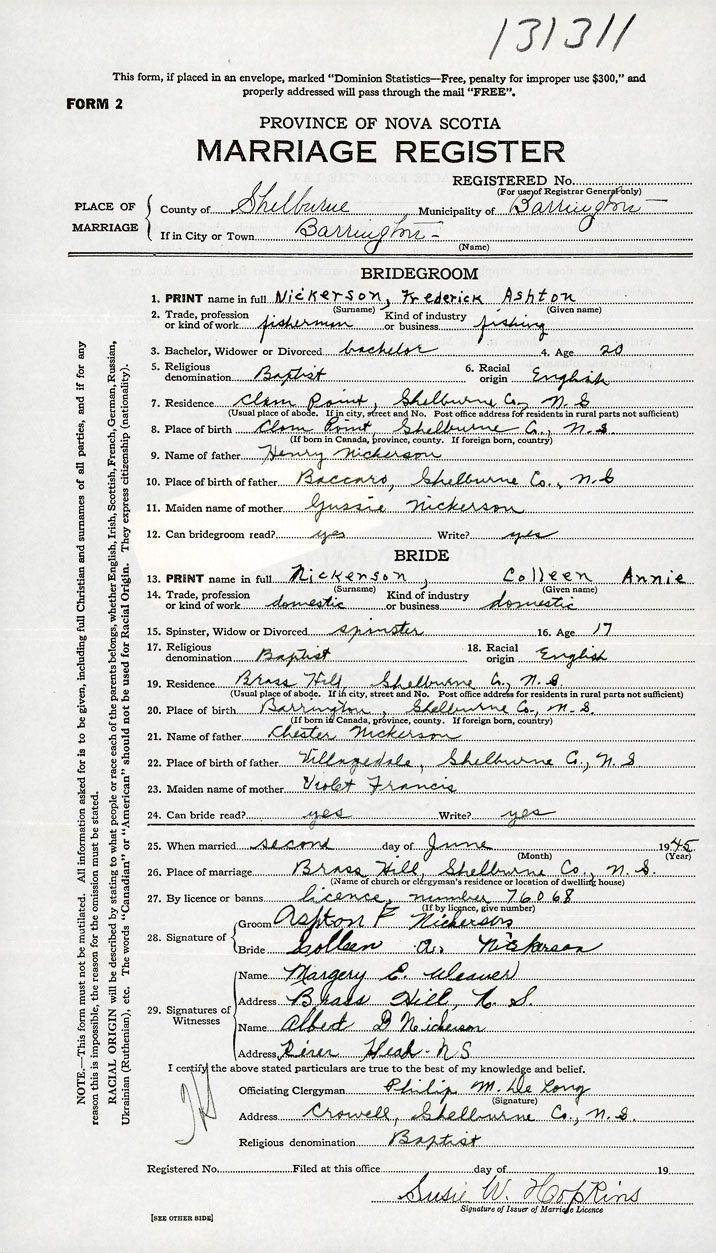 131311
This form, if placed in an envelope, marked "Dominion Statistics—Free, penalty for improper use $300," and
properly addressed will pass through the mail "FREE".
FORM 2
PROVINCE OF NOVA SCOTIA
MARRIAGE REGISTER
REGISTERED No.
(For use of Registrar General only)
PLACE OF MARRIAGE
County of Shelburne Municipality of Barrington
If in City or Town Barrington
(Name)
BRIDEGROOM
1. PRINT name in full Nickerson, Frederick Ashton
(Surname) (Given name)
2. Trade, profession or kind of work fisherman Kind of industry or business fishing
3. Bachelor, Widower or Divorced bachelor 4. Age 20
5. Religious denomination Baptist 6. Racial origin English
7. Residence Clam Point, Shelburne Co., N.S
(Usual place of abode. If in city, street and No. Post office address for residents in rural parts not sufficient)
8. Place of birth Clam Point, Shelburne Co., N.S.
(If born in Canada, province, county. If foreign born, country)
9. Name of father Henry Nickerson
10. Place of birth of father Baccaro, Shelburne Co., N.S
11. Maiden name of mother Gussie Nickerson
12. Can bridegroom read? yes Write? yes
BRIDE
13. PRINT name in full Nickerson, Colleen Annie
(Surname) (Given name)
14. Trade, profession or kind of work domestic Kind of industry or business domestic
15. Spinster, Widow or Divorced spinster 16. Age 17
17. Religious denomination Baptist 18. Racial origin English
19. Residence Brass Hill, Shelburne Co., N.S.
(Usual place of abode. If in city, street and No. Post office address for residents in rural parts not sufficient)
20. Place of birth Barrington, Shelburne Co., N.S.
(If born in Canada, province, county. If foreign born, country)
21. Name of father Chester Nickerson
22. Place of birth of father Villagedale, Shelburne Co., N.S
23. Maiden name of mother Violet Francis
24. Can bride read? yes Write? yes
25. When married second day of June 1945
(Month) (Year)
26. Place of marriage Brass Hill, Shelburne Co., N.S.
(Name of church or clergyman's residence or location of dwelling house)
27. By licence or banns licence, number 76068
(If by licence, give number)
28. Signature of
Groom Ashton F Nickerson
Bride Colleen A. Nickerson
29. Signatures of Witnesses
Name Margery E. Weaver
Address Brass Hill, N.S.
Name Albert D Nickerson
Address River Head-NS
I certify the above stated particulars are true to the best of my knowledge and belief.
Officiating Clergyman Philip M. De Long
(Signature)
Address Crowell, Shelburne Co., N.S.
Religious denomination Baptist
Registered No. Filed at this office day of 19
Susie W. Hopkins
Signature of Issuer of Marriage Licence
[SEE OTHER SIDE]
NOTE.—This form must not be mutilated. All information asked for is to be given, including full Christian and surnames of all parties, and if for any
reason this is impossible, the reason for the omission must be stated.
RACIAL ORIGIN will be described by stating to what people or race each of the parents belongs, whether English, Irish, Scottish, French, German, Russian,
Ukrainian (Ruthenian), etc. The words "Canadian" or "American" should not be used for Racial Origin. They express citizenship (nationality).